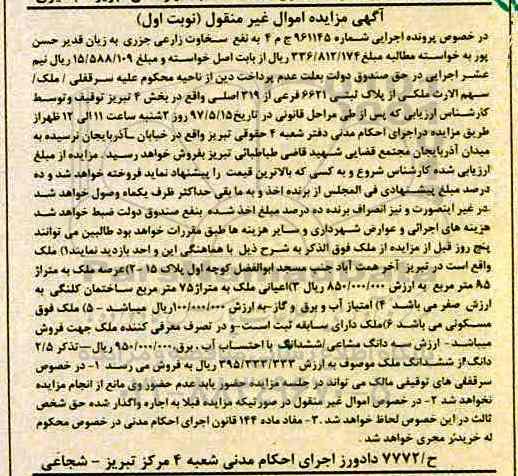 آگهی مزایده اموال غیر منقول (نوبت اول)
در خصوص پرونده اجرایی شماره ۹۶۱۱۴۵ ج م ۴ به نفع سخاوت زارعی جزری به زیان قدیر حسن
پور به خواسته مطالبه مبلغ ۳۳۶/۸۱۲/۱۷۴ ریال از بابت اصل خواسته و مبلغ ۱۵/۵۸۸/۱۰۹ ریال نیم
عشر اجرایی در حق صندوق دولت بعلت عدم پرداخت دین از ناحیه محکوم علیه سرقفلی / ملک/
سهم الارث ملکی از پلاک ثبتی ۶۶۲۱ فرعی از ۳۱۹ اصلی واقع در بخش ۴ تبریز توقیف و توسط
کارشناس ارزیابی که پس از طی مراحل قانونی در تاریخ ۹۷/۵/۱۵ روز ۲شنبه ساعت ۱۱ الی ۱۲ ظهر از
طریق مزایده در اجرای احکام مدنی دفتر شعبه ۴ حقوقی تبریز واقع در خیابان آذربایجان نرسیده به
میدان آذربایجان مجتمع قضایی شهید قاضی طباطبائی تبریز بفروش خواهد رسید. مزایده از مبلغ
ارزیابی شده کارشناس شروع و به کسی که بالاترین قیمت را پیشنهاد نماید فروخته خواهد شد و ده
درصد مبلغ پیشنهادی فی المجلس از برنده اخذ و به ما بقی حداکثر ظرف یکماه وصول خواهد شد
.در غیر اینصورت و نیز انصراف برنده ده درصد مبلغ اخذ شده بنفع صندوق دولت ضبط خواهد شد
هزینه های اجرائی و عوارض شهرداری و سایر هزینه ها طبق مقررات خواهد بود طالبین می توانند
پنج روز قبل از مزایده از ملک فوق الذکر به شرح ذیل با هماهنگی این و احد بازدید نمایند۱) ملک
واقع است در تبریز آخر همت آباد جنب مسجد ابوالفضل کوچه اول پلاک ۱۵ -۲)عرصه ملک به متراژ
۸۵ متر مربع به ارزش ۸۵۰/۰۰۰/۰۰۰ ریال ۳)اعیانی ملک به متراژ ۷۵ متر مربع ساختمان کلنگی به
ارزش صفر می باشد ۴) امتیاز آب و برق و گاز-به ارزش ۱۰۰/۰۰۰/۰۰۰ریال میباشد - ۵) ملک فوق
مسکونی می باشد ۶)ملک دارای سابقه ثبت است -و در تصرف معرفی کننده ملک جهت فروش
میباشد- ارزش سه دانگ مشاعی/ششدانگ با احتساب آب ،برق،۹۵۰/۰۰۰/۰۰۰ ریال—تذکر ۲/۵
دانگ/از ششدانگ ملک موصوف به ارزش ۳۹۵/۳۳۳/۳۳۳ ریال به فروش می رسد ۱- در خصوص
سرقفلی های توقیفی مالک می تواند در جلسه مزایده حضور یابد عدم حضور وی مانع از انجام مزایده
نخواهد شد ۲- در خصوص اموال غیر منقول در صورتیکه مزایده قبلا به اجاره واگذار شده حق شخص
ثالث در این خصوص لحاظ خواهد شد .۳- مفاد ماده ۱۴۴ قانون اجرای احکام مدنی در خصوص محکوم
له خریدار مجری خواهد شد .
ح/۷۷۷۲ دادورز اجرای احکام مدنی شعبه ۴ مرکز تبریز - شجاعی